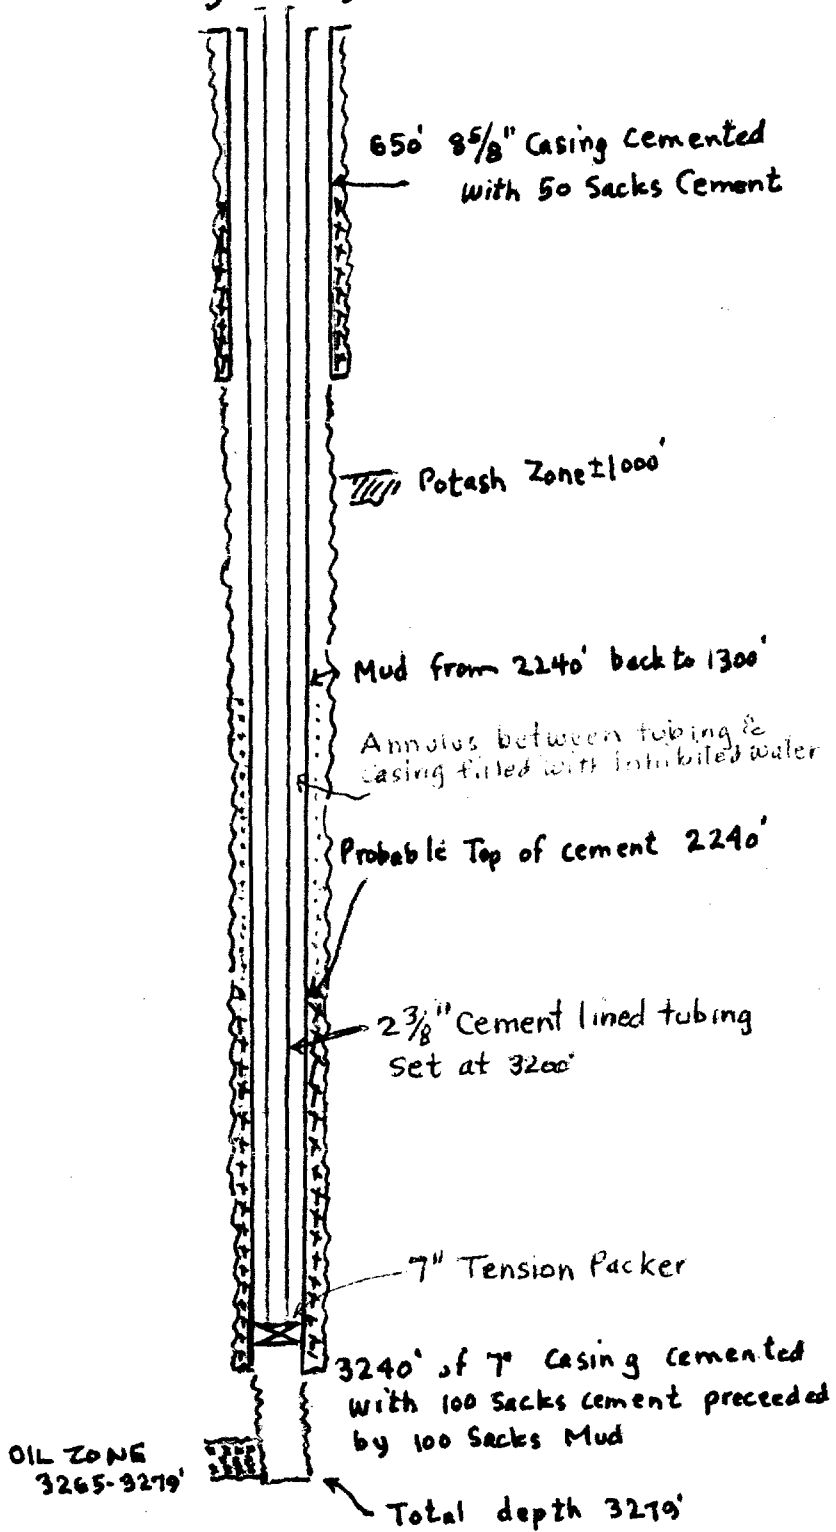 650' 8 5/8" Casing cemented
with 50 Sacks Cement
Potash Zone ±1000'
Mud from 2240' back to 1300'
Annulus between tubing &
casing filled with inhibited water
Probable Top of cement 2240'
2 3/8" Cement lined tubing
set at 3200'
7" Tension Packer
3240' of 7" Casing cemented
with 100 Sacks cement preceeded
by 100 Sacks Mud
OIL ZONE
3265-3279'
Total depth 3279'